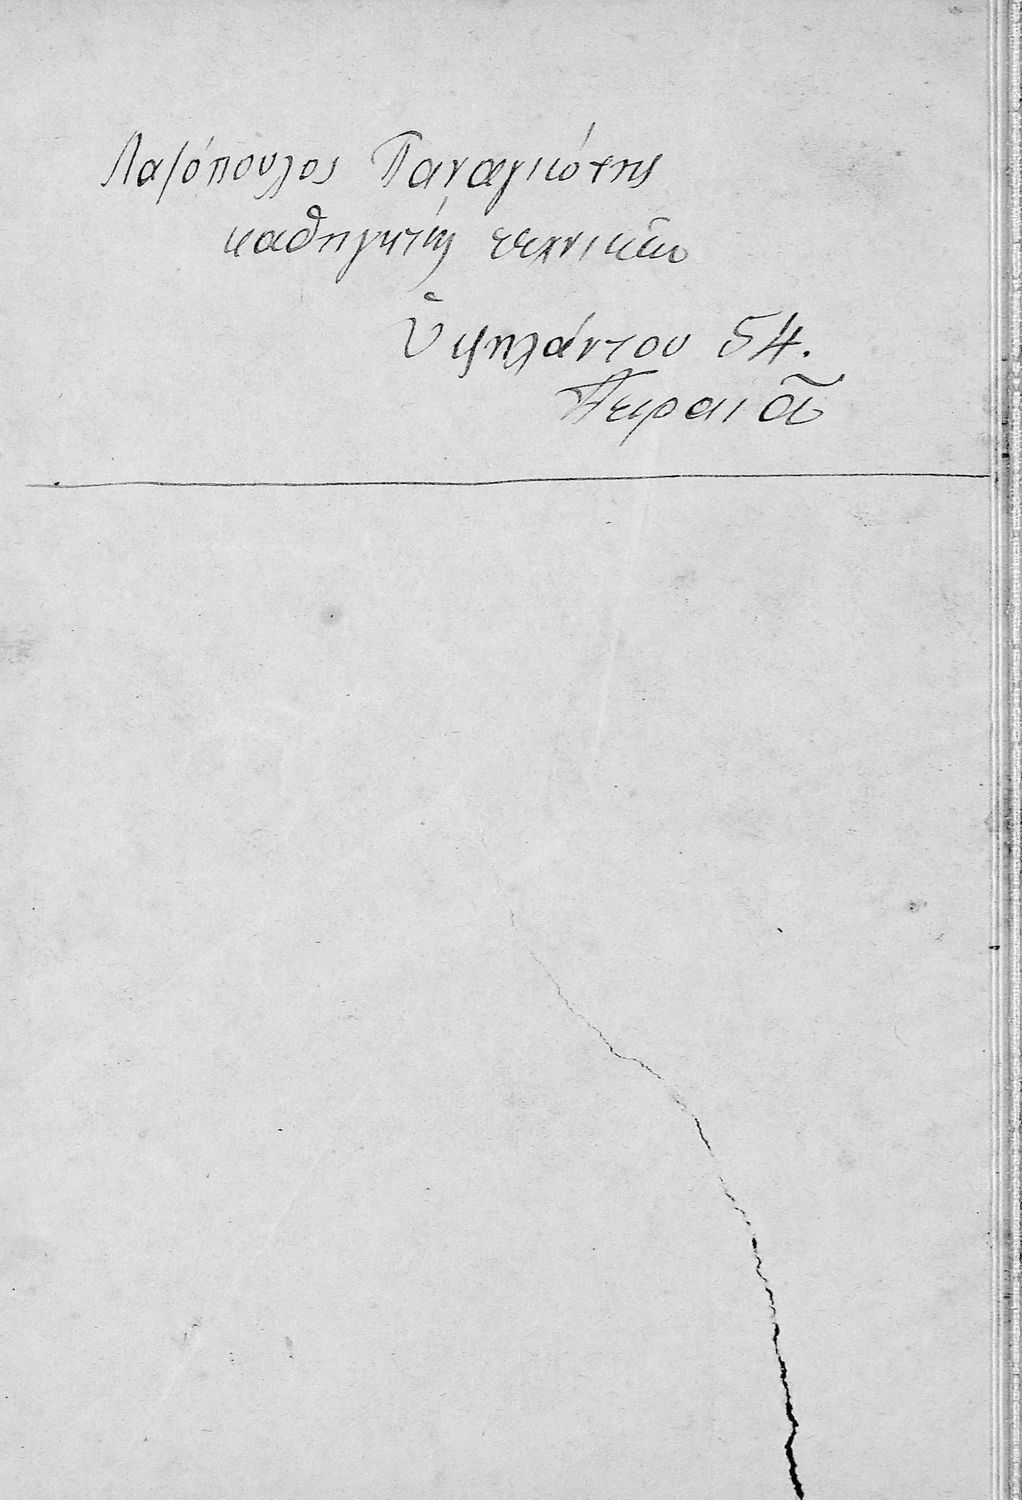 Λαζόπουλος Παναγιώτης
καθηγητής τεχνικῶν
Ὑψηλάντου 54.
Πειραιᾶ